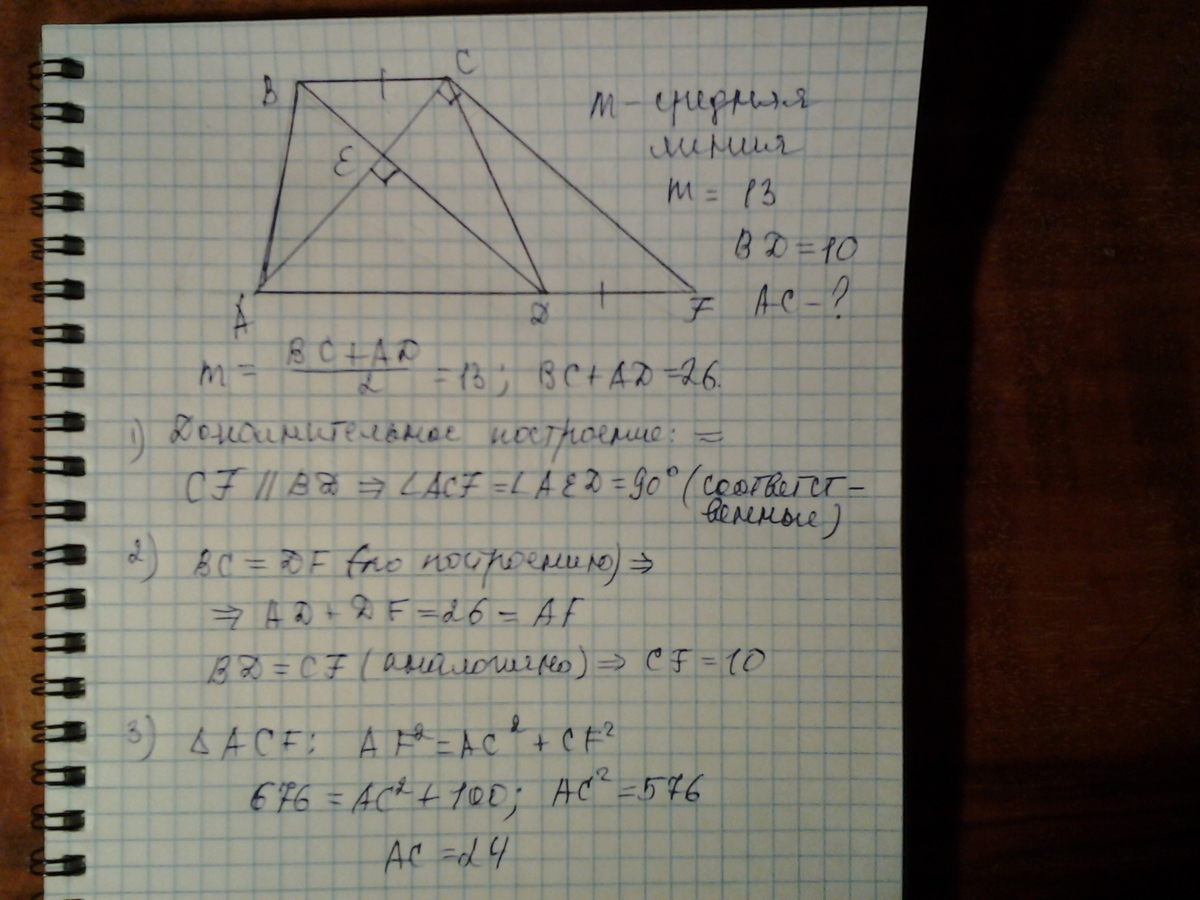 B
C
E
A
D
F
m – средняя
линия
m = 13
BD = 10
AC – ?
m = (BC + AD)/2 = 13; BC + AD = 26.
1) Дополнительное построение: =
CF // BD ⇒ ∠ACF = ∠AED = 90° (соответст-
венные)
2) BC = DF (по построению) ⇒
⇒ AD + DF = 26 = AF
BD = CF (аналогично) ⇒ CF = 10
3) ΔACF: AF² = AC² + CF²
676 = AC² + 100; AC² = 576
AC = 24